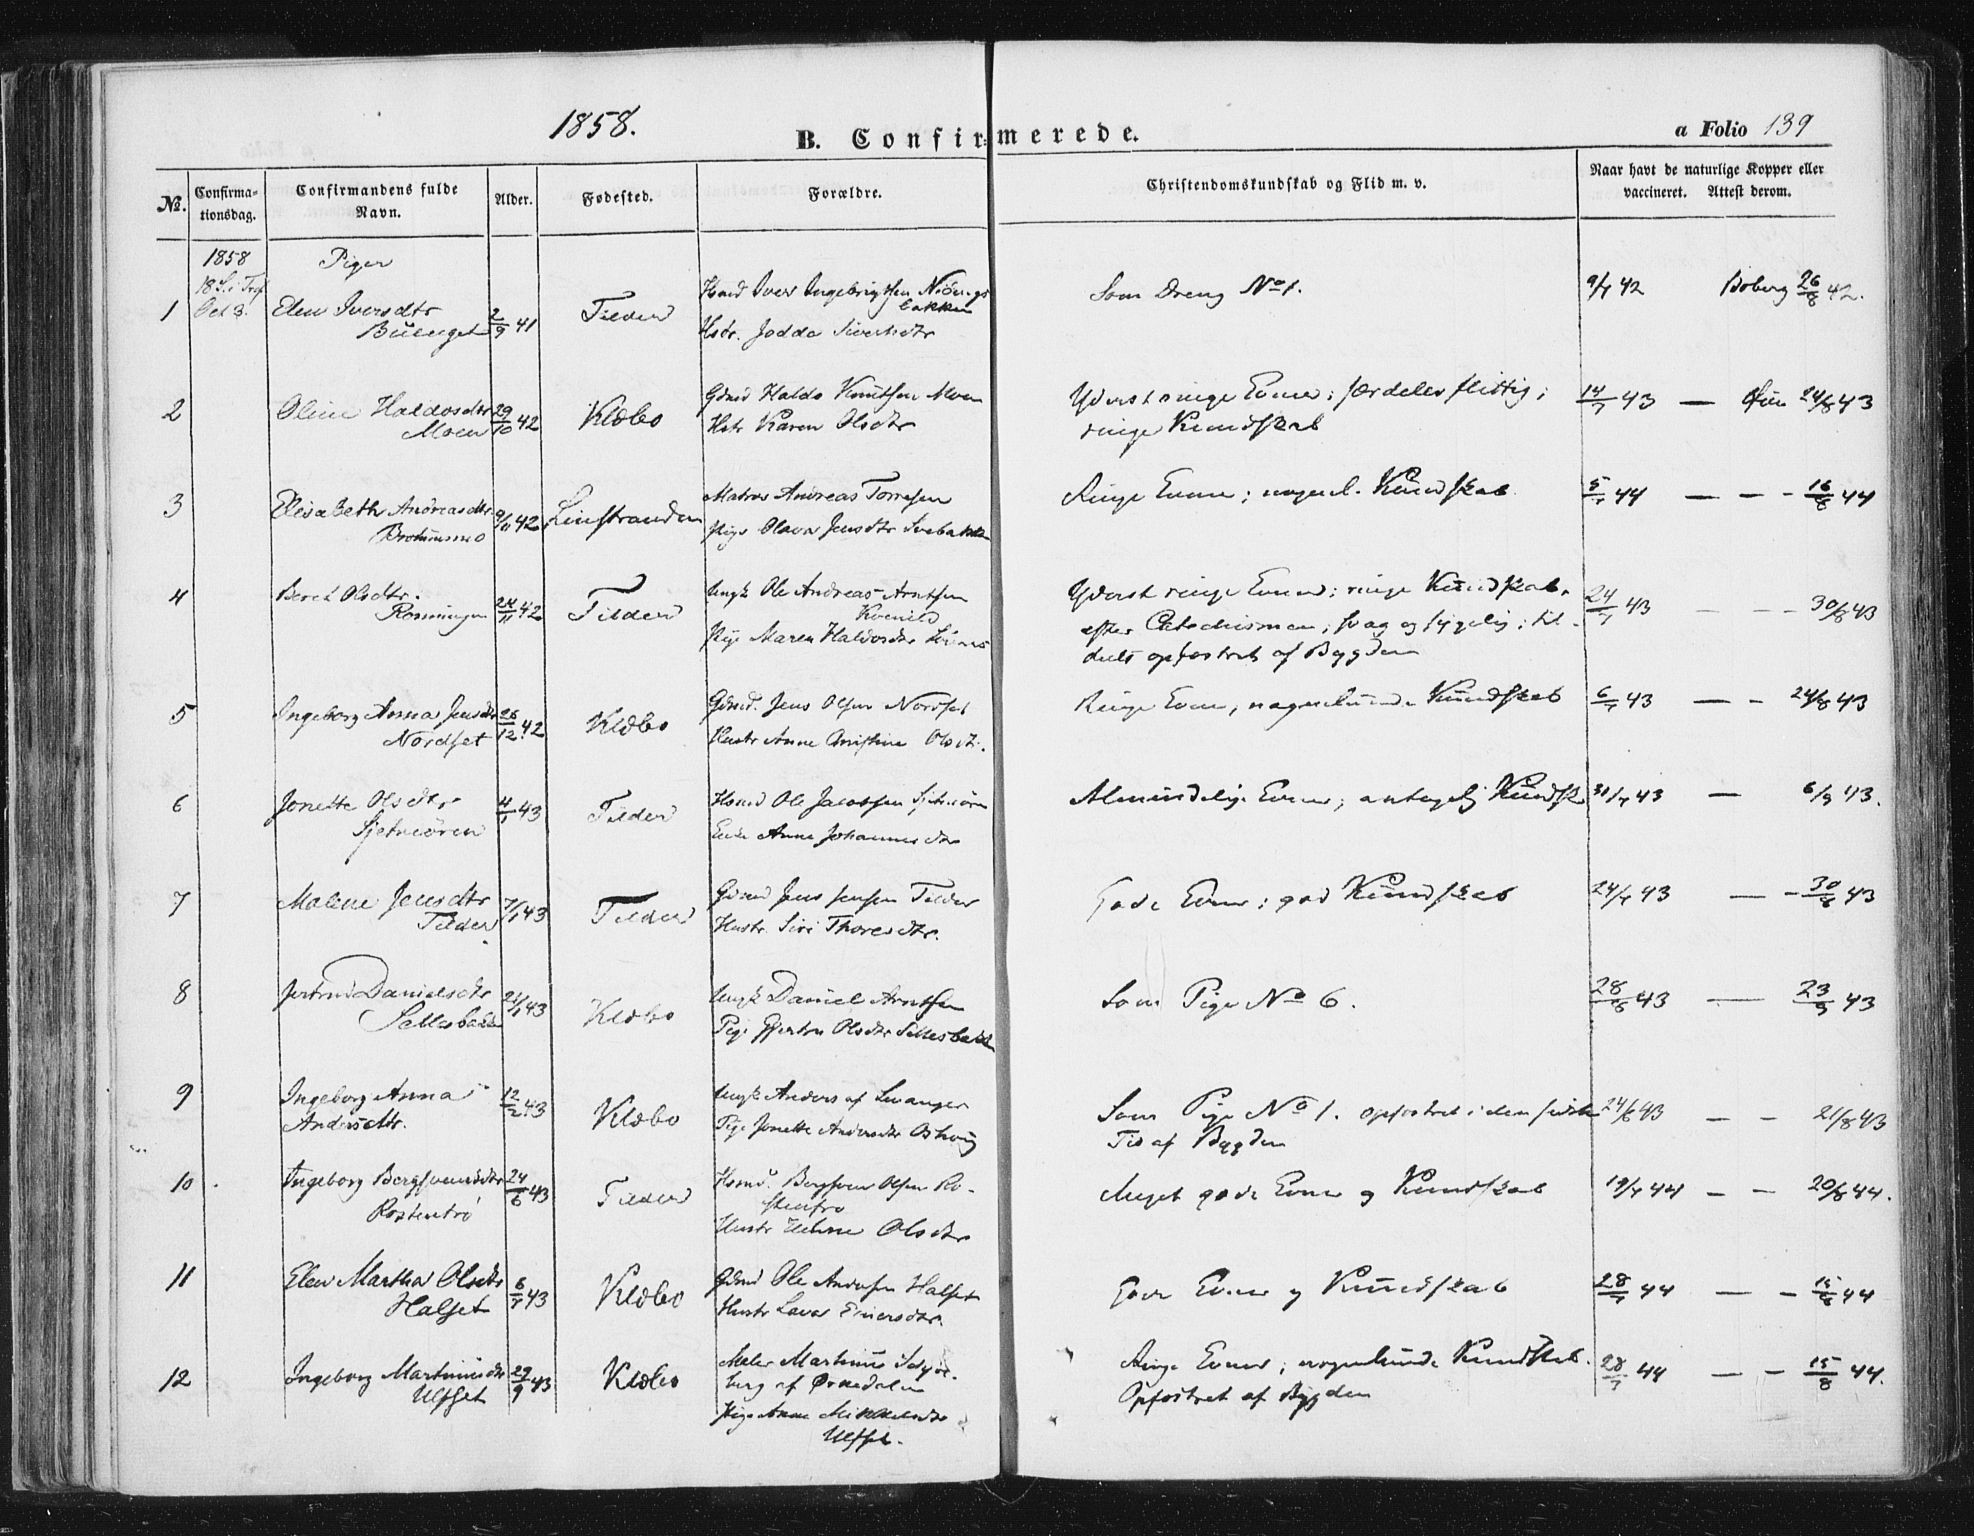 1858.
B. Confirmerede.
a Folio 139
№.
Confirma-
tionsdag.
Confirmandens fulde
Navn.
Alder.
Fødested.
Forældre.
Christendomskundskab og Flid m. v.
Naar havt de naturlige Kopper eller
vaccineret. Attest derom.
1858
Piger
18 S. i Tref
Oct 3.
1
Elen Iversdtr
2/9 41
Tilder
Huusmd Iver Ingebrigtsen
bakken
Hstr. Sivertsdtr
Som Dreng No 1.
9/7 42
Boberg 26/8 42.
2
Oline Haldosdtr
Moen
29/10 42
Klæbo
Gdmd Haldo Knutsen Moen
Hstr Karen Olsdtr
Yderst ringe Evner; særdeles flittig;
ringe Kundskab
14/7 43 — 24/8 43
3
Elisabeth Andreasdtr
9/11 42
Leinstranden
Andreas Torresen
Pige Olava Jensdtr
Ringe Evner; nogenl. Kundskab
5/7 44 — — - 16/8 44
4
Beret Olsdtr.
24/11 42
Tilder
Ungk Ole Andreas Arntsen
Pige Maren Haldosdtr
Yderst ringe Evner; ringe Kundskab,
efter Catechismen; svag og sygelig; til-
deels opfostret af Bygden
24/7 43 — — - 30/8 43
5
Ingeborg Anna Jensdtr
Nordset
26/12 42
Klæbo
Gdmd. Jens Olsen Nordset
Hustr Anne Christine Olsdtr.
Ringe Evner, nogenlunde Kundskab
6/7 43 — - 24/8 43
6
Jonette Olsdtr
Sjetneören
4/1 43
Tilder
Husmd Ole Jacobsen Sjetneören
Enke Anne Johannesdtr
Almindelige Evner; antagelig Kundsk
31/7 43 — 6/9 43.
7
Malene Jensdtr
Tilder
7/1 43
Tilder
Gdmd Jens Jensen Tilder
Hustr. Siri Thoresdtr.
Gode Evner; god Kundskab
24/7 43 — - 30/8 43
8
Danielsdtr
21/1 43
Klæbo
Ungk Daniel Arntsen
Pige Olsdtr Sellesbakk
Som Pige No 6.
28/8 43 — 23/9 43
9
Ingeborg Anna
Andersdtr.
12/2 43
Klæbo
Ungk Anders af Levanger
Pige Jonette Andersdtr
Som Pige No 1. opfostret i den sidste
Tid af Bygden
24/6 43 — — 21/8 43
10
Ingeborg Bergsvensdtr
Rostentrö
24/6 43
Tilder
Husmd. Bergsven Olsen Ro-
stentrö
Hustr Olsdtr
Meget gode Evner og Kundskab
19/7 44 — — 20/8 44.
11
Elen Martha Olsdtr
Halset
6/7 43
Klæbo
Gdmd Ole Andersen Halset
Hustr Einersdtr.
Gode Evner og Kundskab
28/7 44 — - 15/8 44
12
Ingeborg Martinusdtr
Ulfset
29/9 43
Klæbo
Maler Martinus
berg af Örkedalen
Pige Anne Mikkelsdtr
Ulfset.
Ringe Evner; nogenlunde Kundskab.
Opfostret af Bygden
28/7 44 — - 15/8 44.